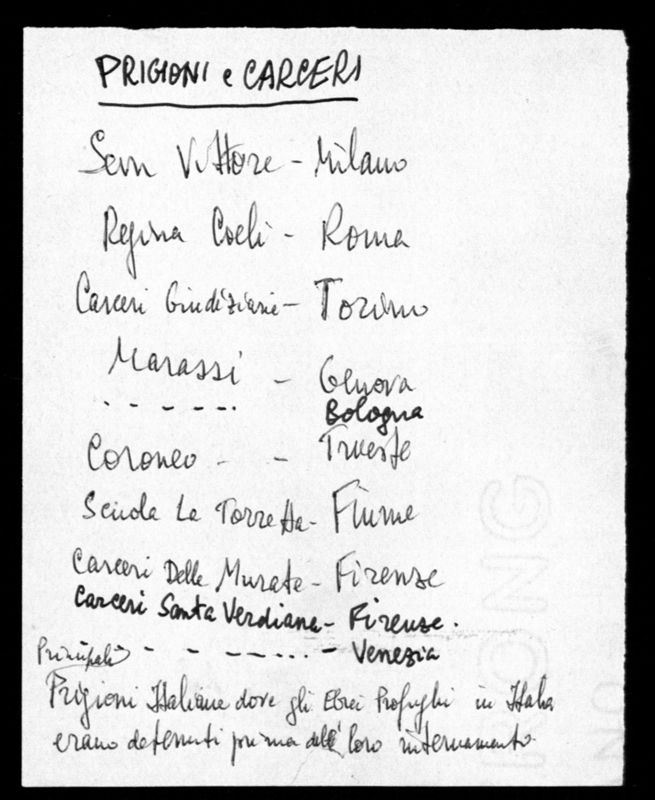 PRIGIONI e CARCERI
San Vittore - Milano
Regina Coeli - Roma
Carceri Giudiziarie - Torino
Marassi - Genova
- - - - - Bologna
Coroneo - - Trieste
Scuola La Torretta - Fiume
Carceri Delle Murate - Firenze
Carceri Santa Verdiana - Firenze.
- - - - ... - Venezia
Principali
Prigioni Italiane dove gli Ebrei Profughi in Italia
erano detenuti prima del loro internamento